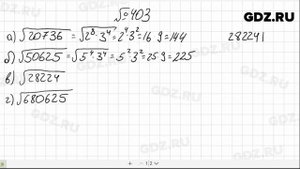 №403
GDZ.RU
а) √20736 = √2⁸·3⁴ = 2⁴·3² = 16·9 = 144
282241
б) √50625 = √5⁴·3⁴ = 5²·3² = 25·9 = 225
в) √28224
г) √680625
GDZ.RU